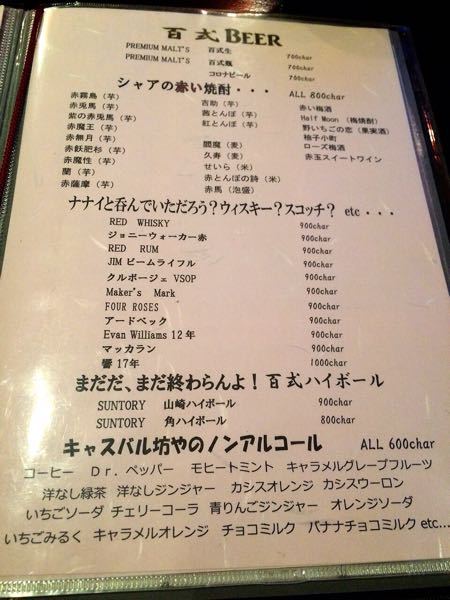 百式 BEER
PREMIUM MALT'S 百式生 700char
PREMIUM MALT'S 百式瓶 700char
コロナビール 700char
シャアの赤い焼酎・・・ ALL 800char
赤霧島（芋） 吉助（芋） 赤い梅酒
赤兎馬（芋） 茜とんぼ（芋） Half Moon（梅焼酎）
紫の赤兎馬（芋） 紅とんぼ（芋） 野いちごの恋（果実酒）
赤魔王（芋） 柚子小町
赤無月（芋） 閻魔（麦） ローズ梅酒
赤飫肥杉（芋） 久寿（麦） 赤玉スイートワイン
赤魔性（芋） せいら（米）
蘭（芋） 赤とんぼの詩（米）
赤薩摩（芋） 赤馬（泡盛）
ナナイと呑んでいただろう？ウィスキー？スコッチ？ etc・・・
RED WHISKY 900char
ジョニーウォーカー赤 900char
RED RUM 900char
JIM ビームライフル 900char
クルボージェ VSOP 900char
Maker's Mark 900char
FOUR ROSES 900char
アードベック 900char
Evan Williams 12年 900char
マッカラン 900char
響 17年 1000char
まだだ、まだ終わらんよ！百式ハイボール
SUNTORY 山崎ハイボール 900char
SUNTORY 角ハイボール 800char
キャスバル坊やのノンアルコール ALL 600char
コーヒー Dr．ペッパー モヒートミント キャラメルグレープフルーツ
洋なし緑茶 洋なしジンジャー カシスオレンジ カシスウーロン
いちごソーダ チェリーコーラ 青りんごジンジャー オレンジソーダ
いちごみるく キャラメルオレンジ チョコミルク バナナチョコミルク etc…